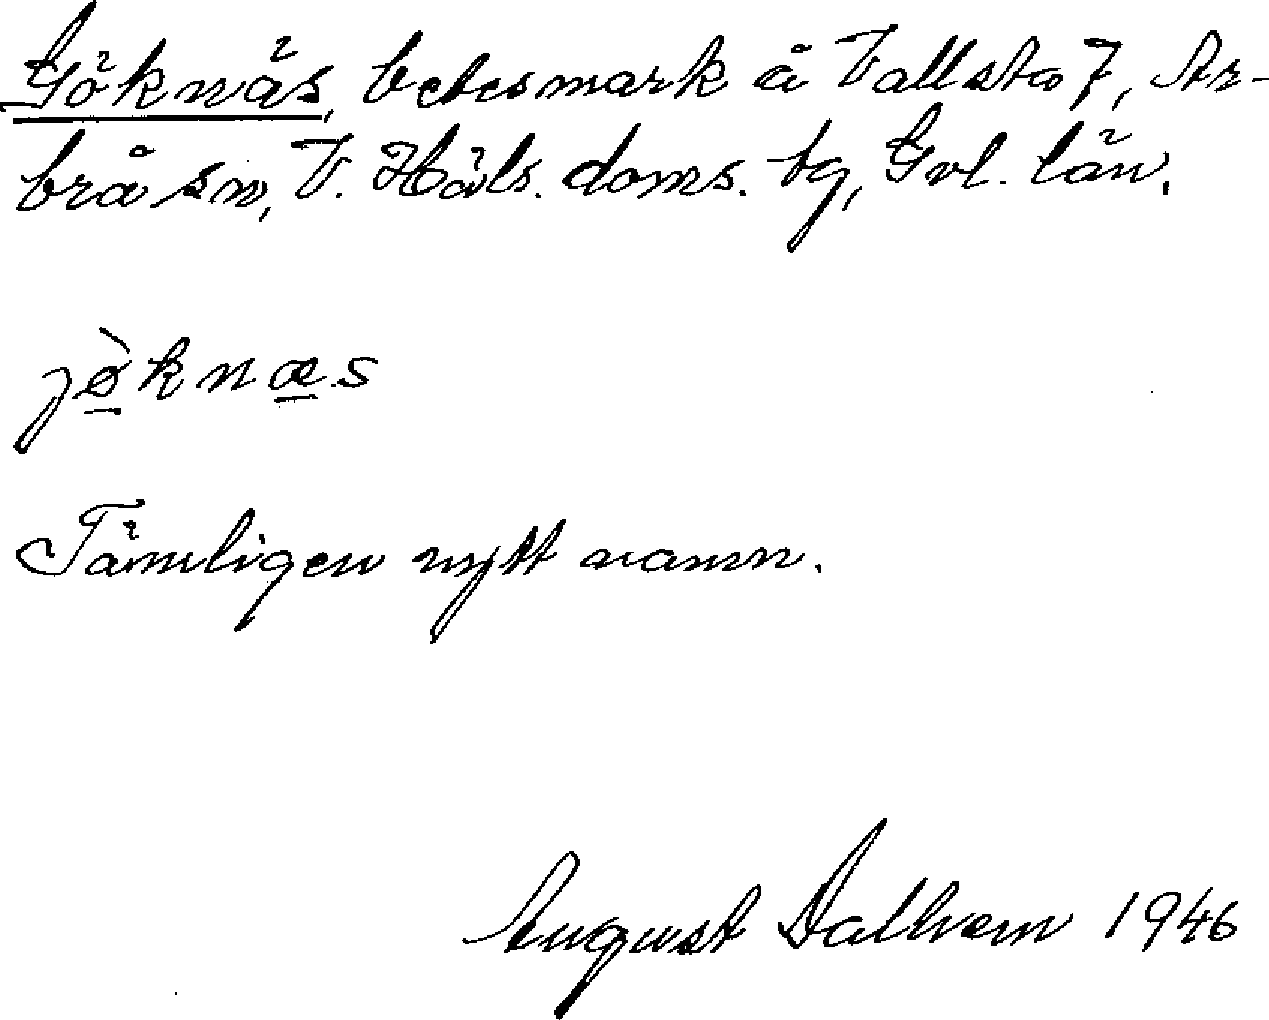 Göknäs, betesmark å Vallsta 7, Ar-
brå sn, V. Häls. doms. tg, Gvl. län.
jø̀knæs
Tämligen nytt namn.
August Dalhem 1946